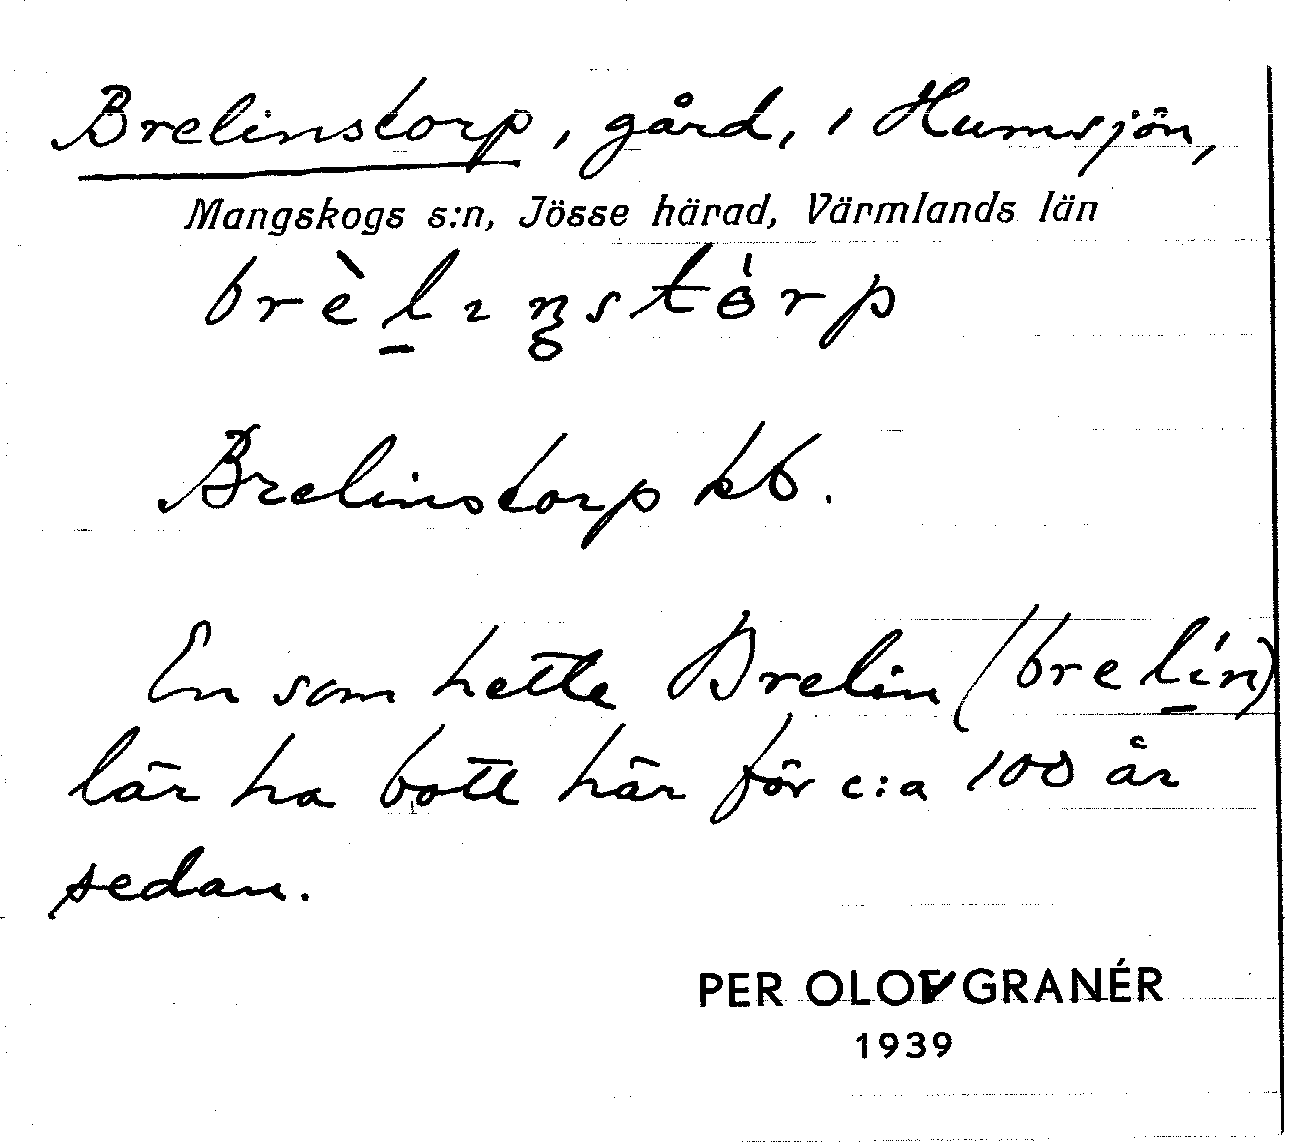 Brelinstorp, gård, i Humsjön,
Mangskogs s:n, Jösse härad, Värmlands län
brèlın̥stòrp
Brelinstorp kb.
En som hette Brelin (brelín)
lär ha bott här för c:a 100 år
sedan.
PER OLOV GRANÉR
1939